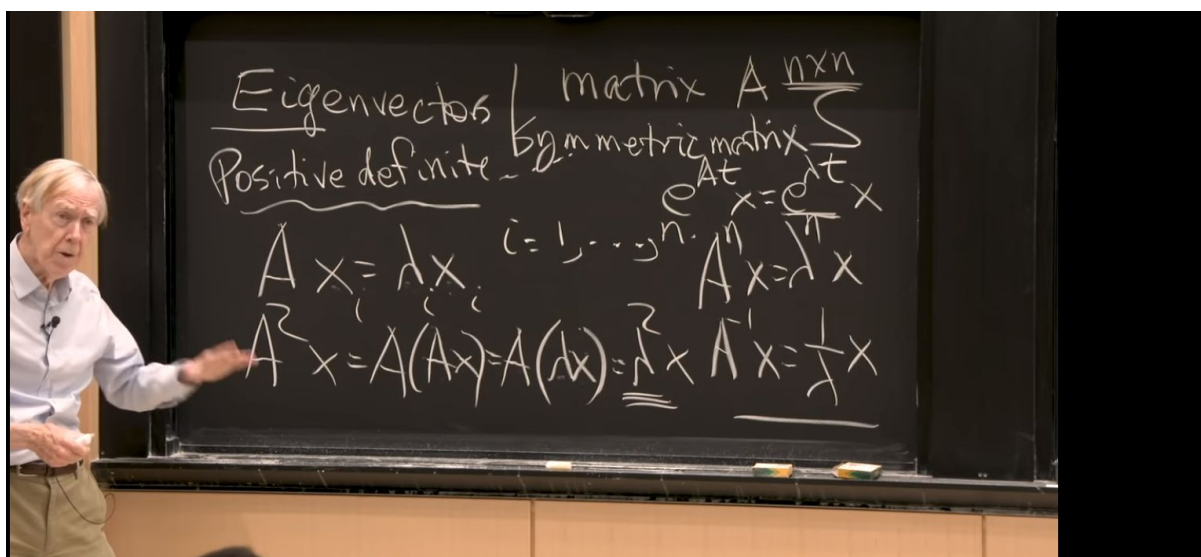 Eigenvectors
Positive definite
matrix A n×n
Symmetric matrix S
e^{At} x = e^{λt} x
A x_i = λ_i x_i
i = 1, ..., n.
A^n x = λ^n x
A^2 x = A(Ax) = A(λx) = λ^2 x
A^{-1} x = 1/λ x